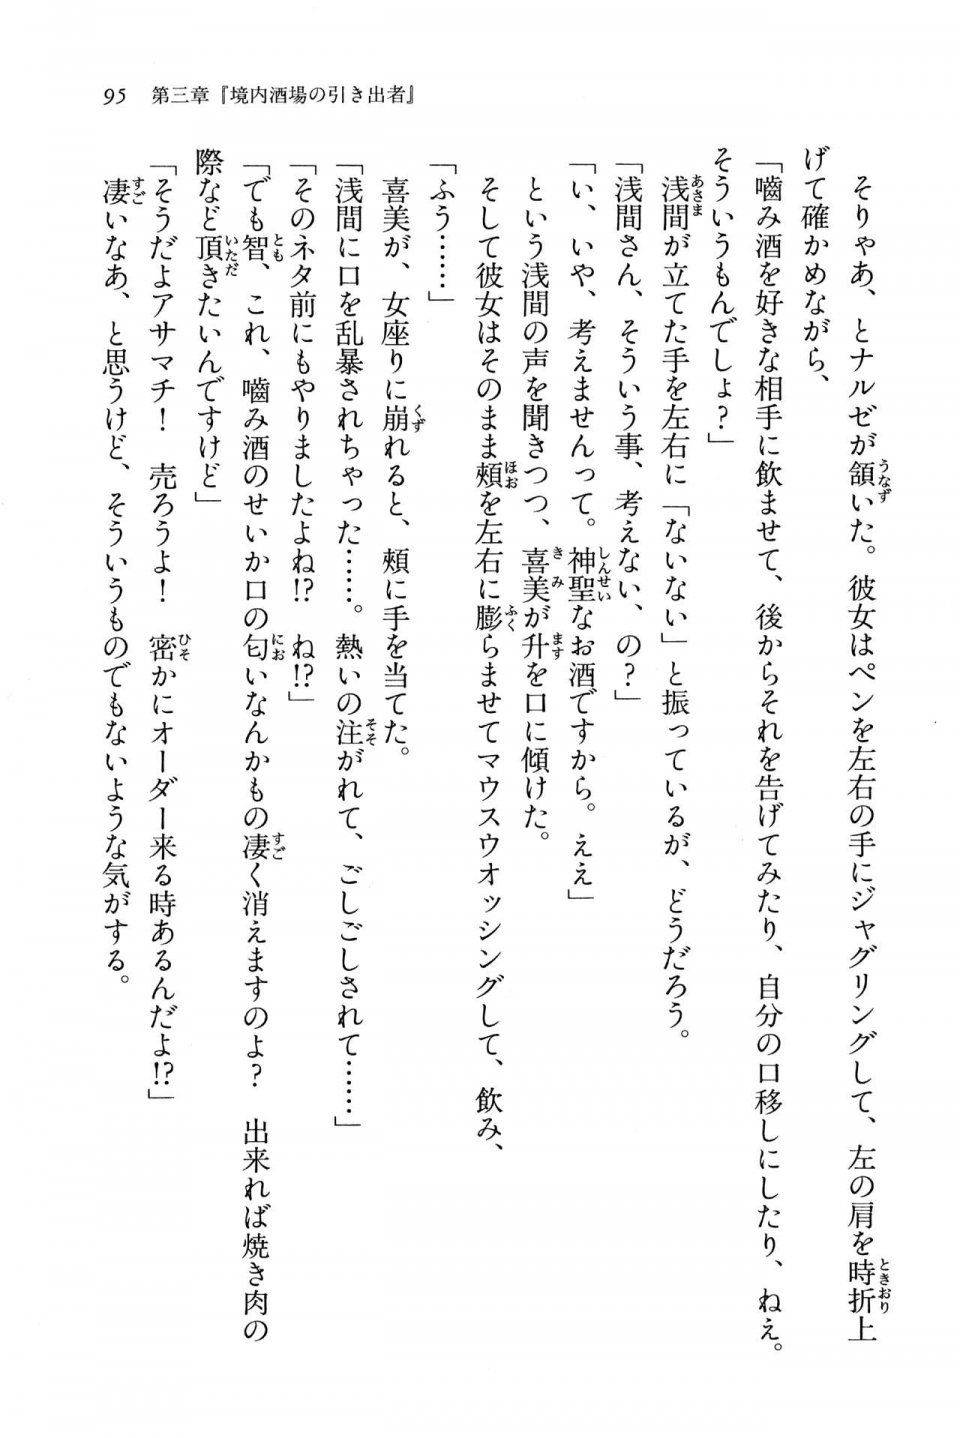 95　第三章『境内酒場の引き出者』
　そりゃあ、とナルゼが頷いた。彼女はペンを左右の手にジャグリングして、左の肩を時折上
げて確かめながら、
「嚙み酒を好きな相手に飲ませて、後からそれを告げてみたり、自分の口移しにしたり、ねえ。
そういうもんでしょ？」
　浅間が立てた手を左右に「ないない」と振っているが、どうだろう。
「浅間さん、そういう事、考えない、の？」
「い、いや、考えませんって。神聖なお酒ですから。ええ」
　という浅間の声を聞きつつ、喜美が升を口に傾けた。
　そして彼女はそのまま頰を左右に膨らませてマウスウオッシングして、飲み、
「ふう……」
　喜美が、女座りに崩れると、頰に手を当てた。
「浅間に口を乱暴されちゃった……。熱いの注がれて、ごしごしされて……」
「そのネタ前にもやりましたよね!?　ね!?」
「でも智、これ、嚙み酒のせいか口の匂いなんかもの凄く消えますのよ？　出来れば焼き肉の
際など頂きたいんですけど」
「そうだよアサマチ！　売ろうよ！　密かにオーダー来る時あるんだよ!?」
　凄いなあ、と思うけど、そういうものでもないような気がする。